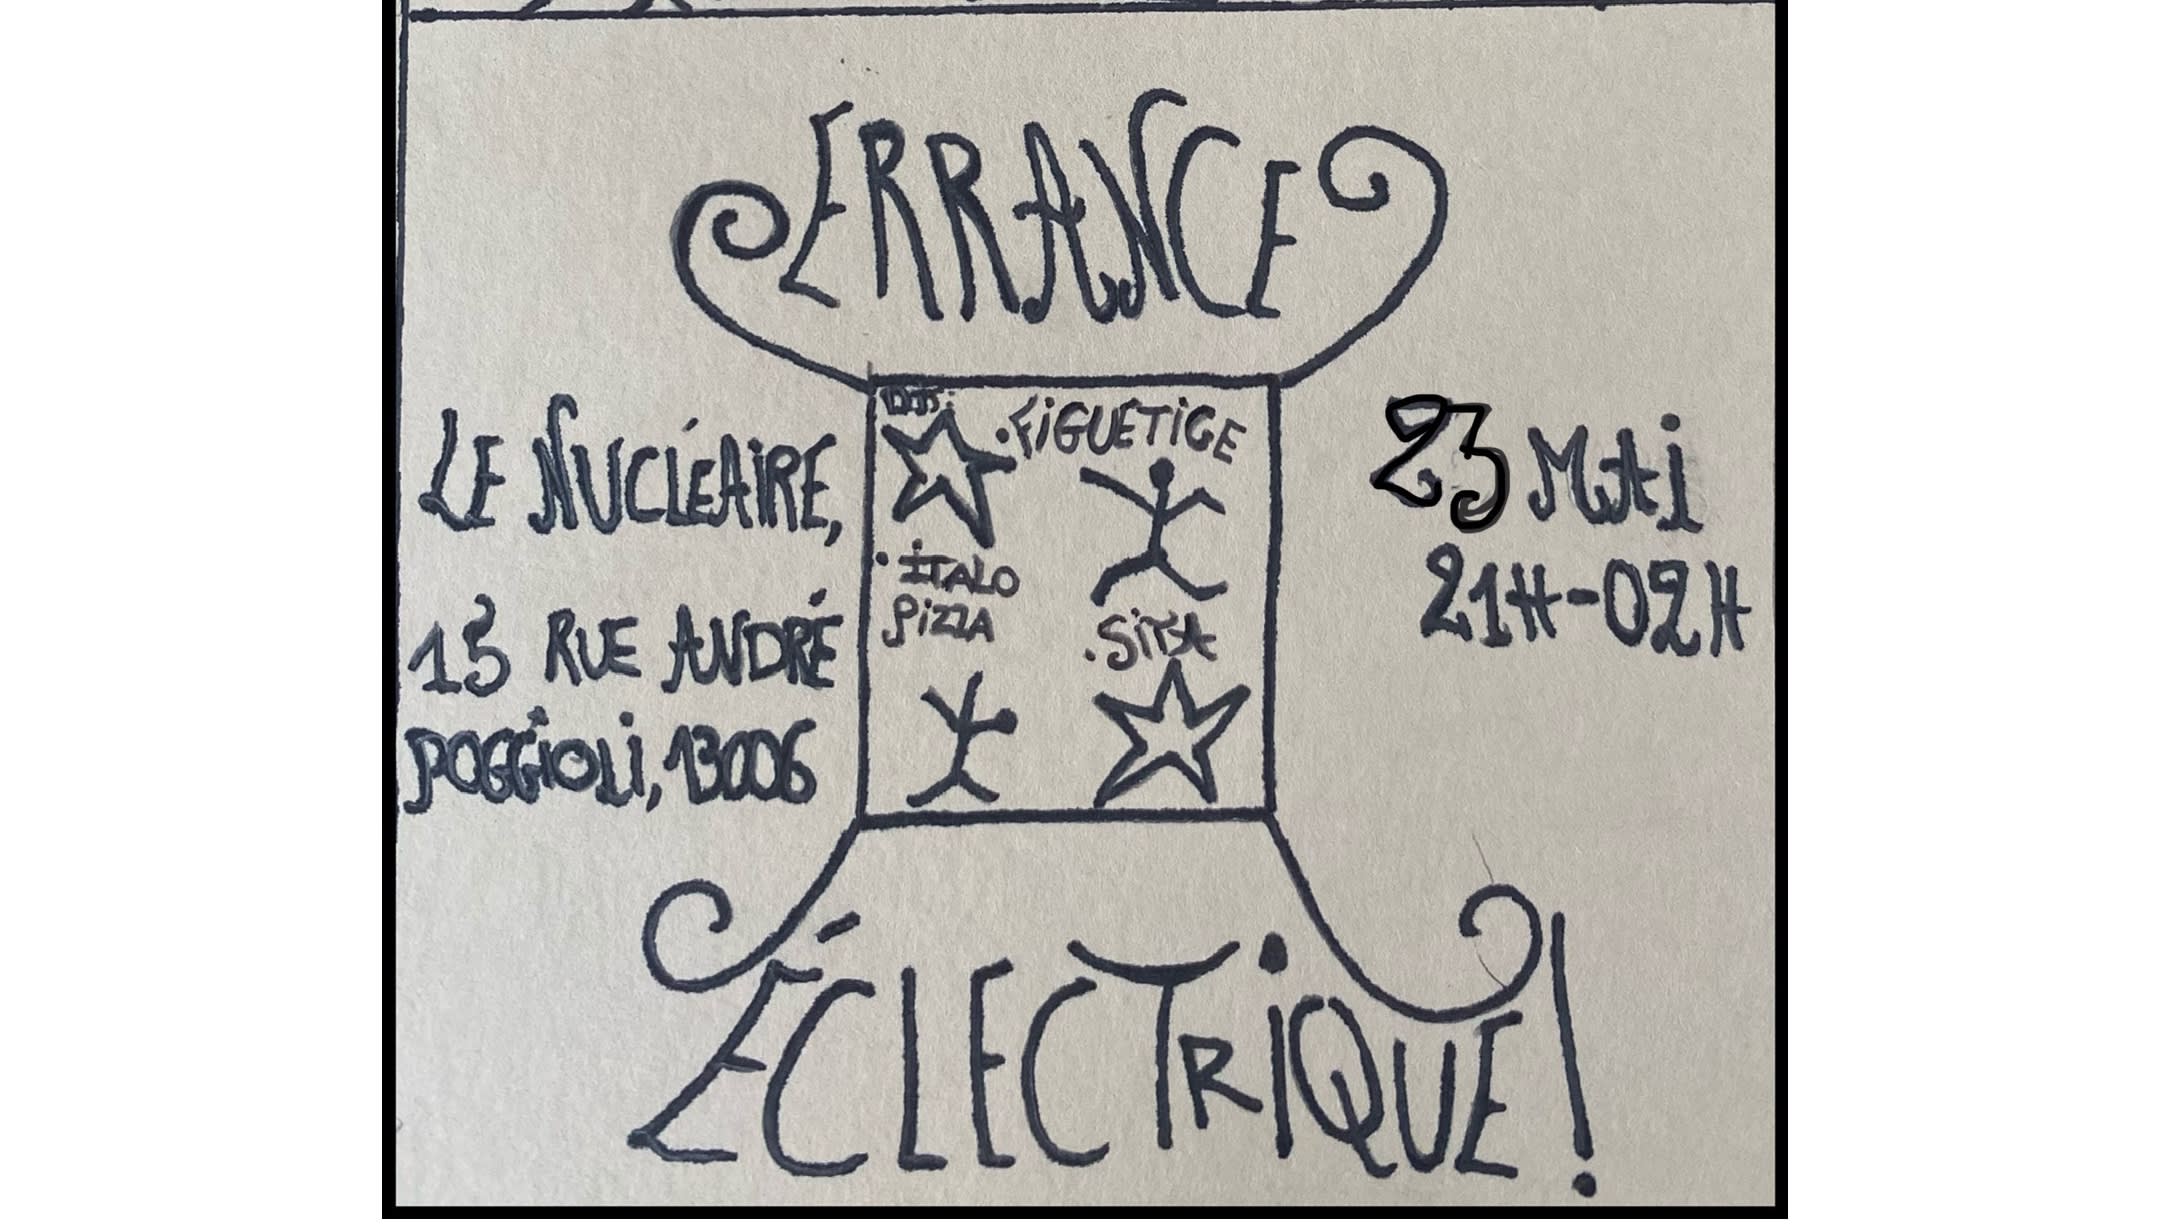 ERRANCE
DJS:
• FIGUETIGE
• ITALO
PIZZA
• SITA
LE NUCLÉAIRE,
15 RUE ANDRÉ
POGGIOLI, 13006
23 MAI
21H-02H
ÉCLECTRIQUE!